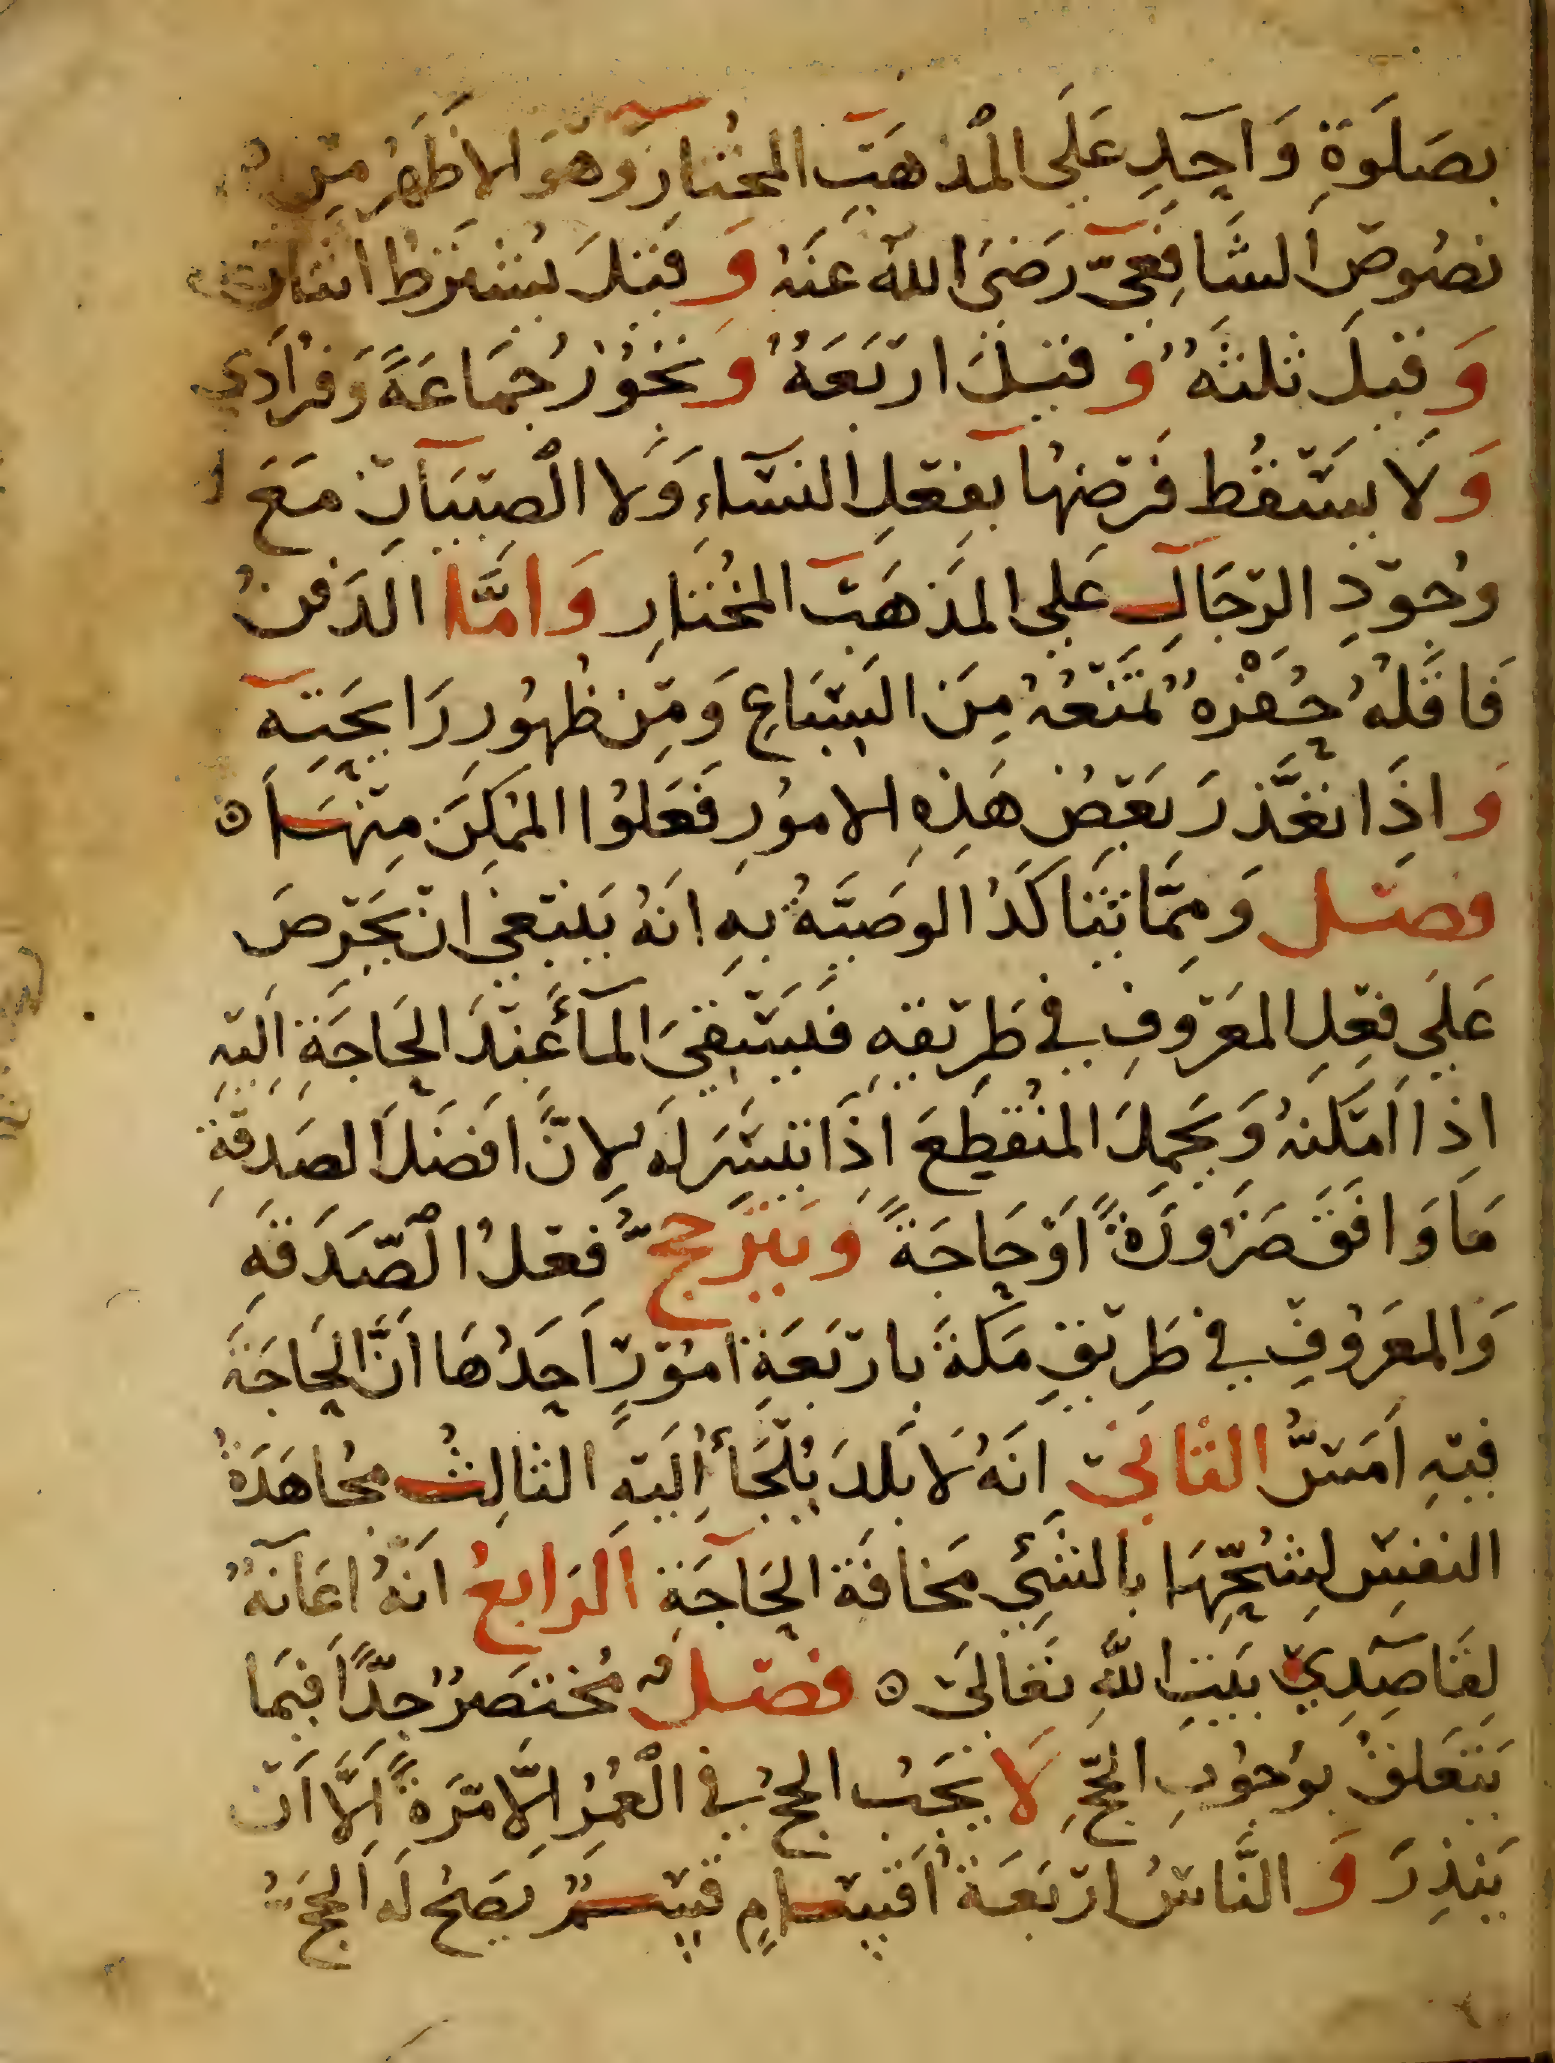 بصَلَوةِ وَاحِدِ عَلَى المْذهَبِ المخُتَارِ وَهوَ الاظَهَرُ مِن
نصُوصِ الشَافِعيّ رَضىَ اللّه عَنهُ وَ قيلَ يُشترَطُ اثنانِ
وَ قيلَ ثلثَهٌ وَ قيلَ اربَعَهٌ وَ تجَوُزُ جمَاعَةً وَفرُادَى
وَلَا يسقُط فَرضهُا بفِعلِ النسَاءِ وَلا الصِبيَانِ مَعَ
وُجوُدِ الرّجَالِ عَلى المَذهَبِ المخُتَارِ وَامَّا الدَفنُ
فَاقَلهُ حُفرْهٌ تمَنعُهُ مِنَ السِبَاعِ وَمِن ظهُورِ رَايحَتِهِ
وَاذَا تعَذّرَ بَعضُ هَذِهِ الامُورِ فَعَلوُا الممُكِنَ مِنهَا ه
فصل وَمِمّا تتَاكَدُ الوصَيّةُ بهِ انَهُ يَنبَغى ان يَحرِصَ
عَلَى فِعلِ المعَرُوفِ في طَرِيقهِ فَيسَقىَ المآءَ عِندَ الحَاجَةِ اِليَهِ
اذا اَمكَنهُ وَيحَمِلَ المنُقطِعَ اذَا تيَسَّرَ لَه لِانَّ افضَلَ الصَدقةِ
مَا وَافَقَ ضَرُورَةً اوَ حَاجَةً وَيترَجحُّ فِعلُ الصّدَقَهِ
وَالمعَرُوفِ في طَرِيقِ مَكةَ بارَبعَةِ امُورٍ اَحدُهَا اَنَّ الحَاجَةَ
فيهِ اَمَسُّ الثانى انَهُ لَا بَلدَ يُلجَأ اِليَهِ الثالِثُ مجُاهَدَةُ
النفسِ لِشُحِّهَا بالشَئ مَخافَة الحَاجَةِ الَرابعُ انَهُ اعَانَهٌ
لِقَاصِدِي بَيتِ اللّهِ تعَالىَ ه فصل مُختصَرُ جِدًّا فيمَا
يَتعَلقُ بوُجوُبِ الحجّ لَا يجَبُ الحجُ في العُمُرِ اِلّا مَرّةً اِلَّا اَن
يَنذِرَ وَالنَّاسُ اربَعَة اَقسَامٍ قِسمٌ يصَحُ لَه الحجُ